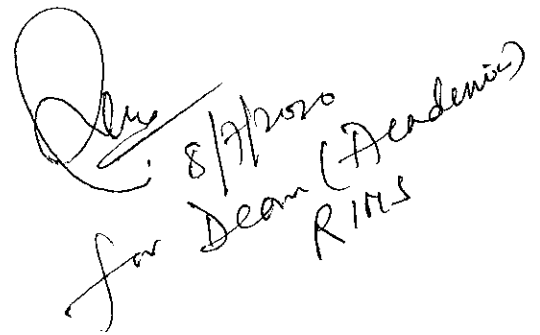 8/7/2020
for Dean (Academic)
RIMS